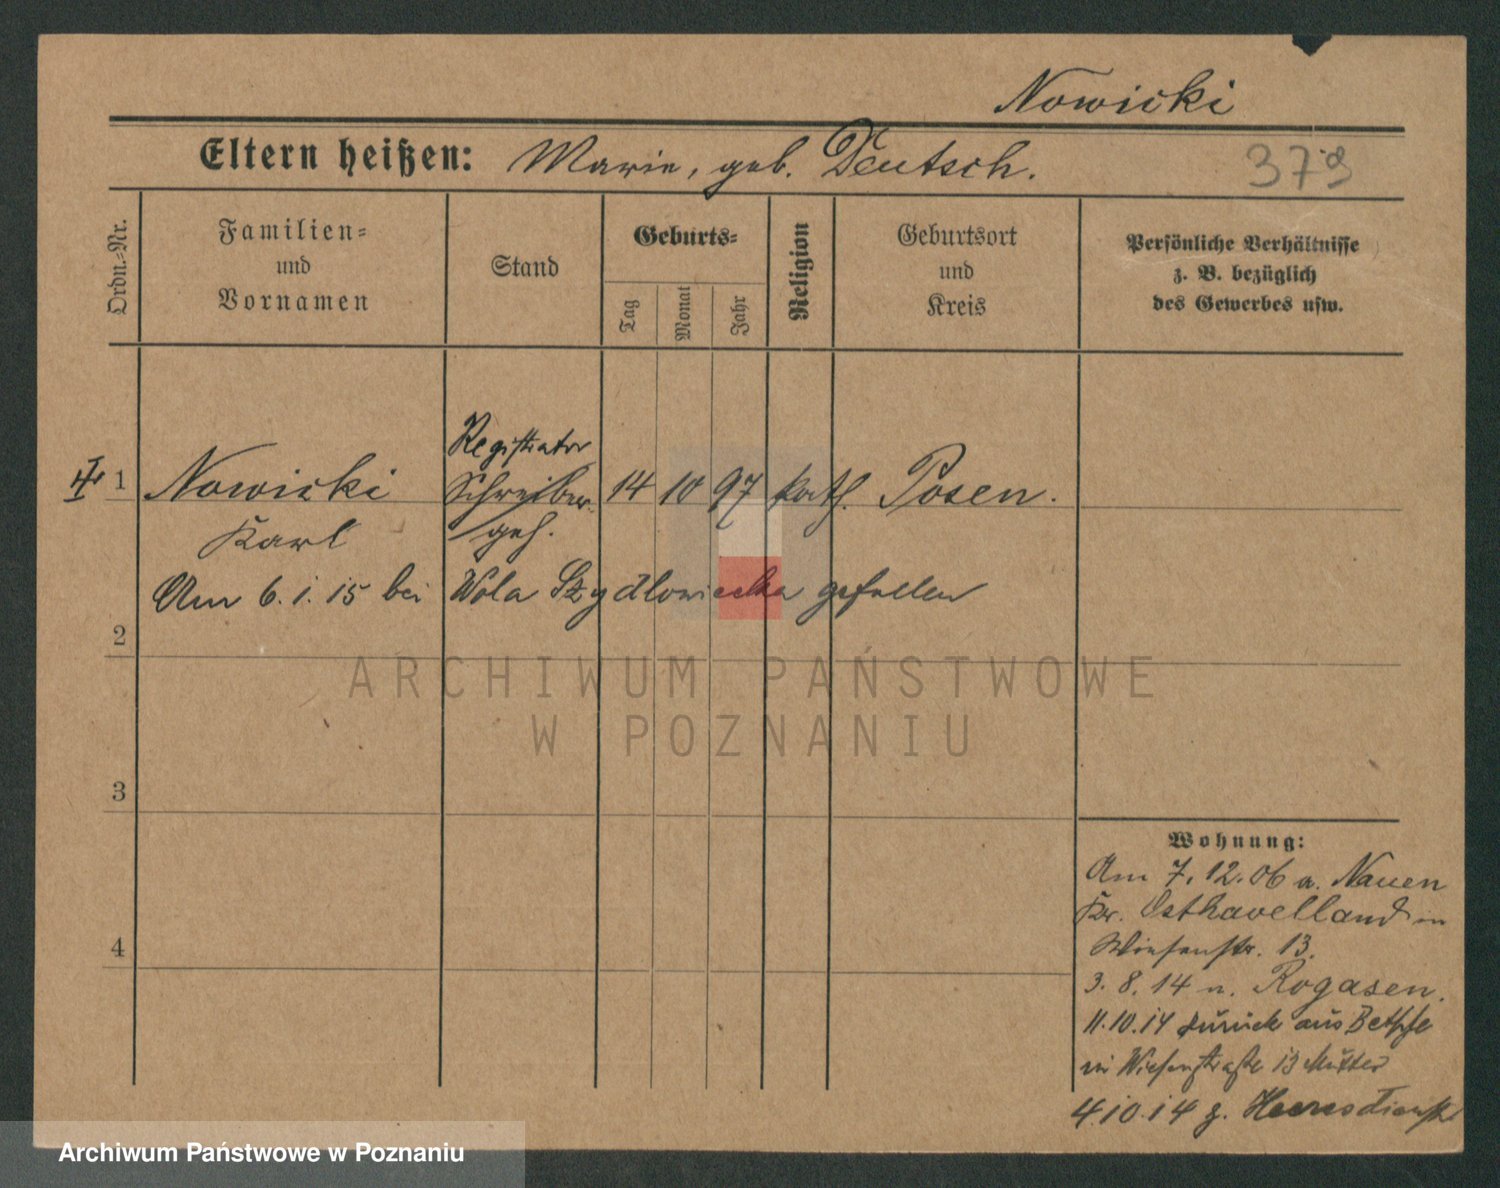 Nowicki
Eltern heißen: Marie, geb. Deutsch.
379
Ordn.-Nr.
Familien-
und
Vornamen
Stand
Geburts-
Tag
Monat
Jahr
Religion
Geburtsort
und
Kreis
Persönliche Verhältnisse
z. B. bezüglich
des Gewerbes usw.
Registrator
1 Nowicki Schreiber 14 10 97 kath. Posen.
Karl geh.
Am 6.1.15 bei Wola Szydlowiecka gefallen
2
3
4
Wohnung:
Am 7.12.06 a. Nauen
Kr. Osthavelland in
Wiesenstr. 13.
3.8.14 n. Rogasen.
11.10.14 zurück aus
Wiesenstraße 13 Mutter
4.10.14 z. Heeresdienst
ARCHIWUM PAŃSTWOWE
W POZNANIU
Archiwum Państwowe w Poznaniu